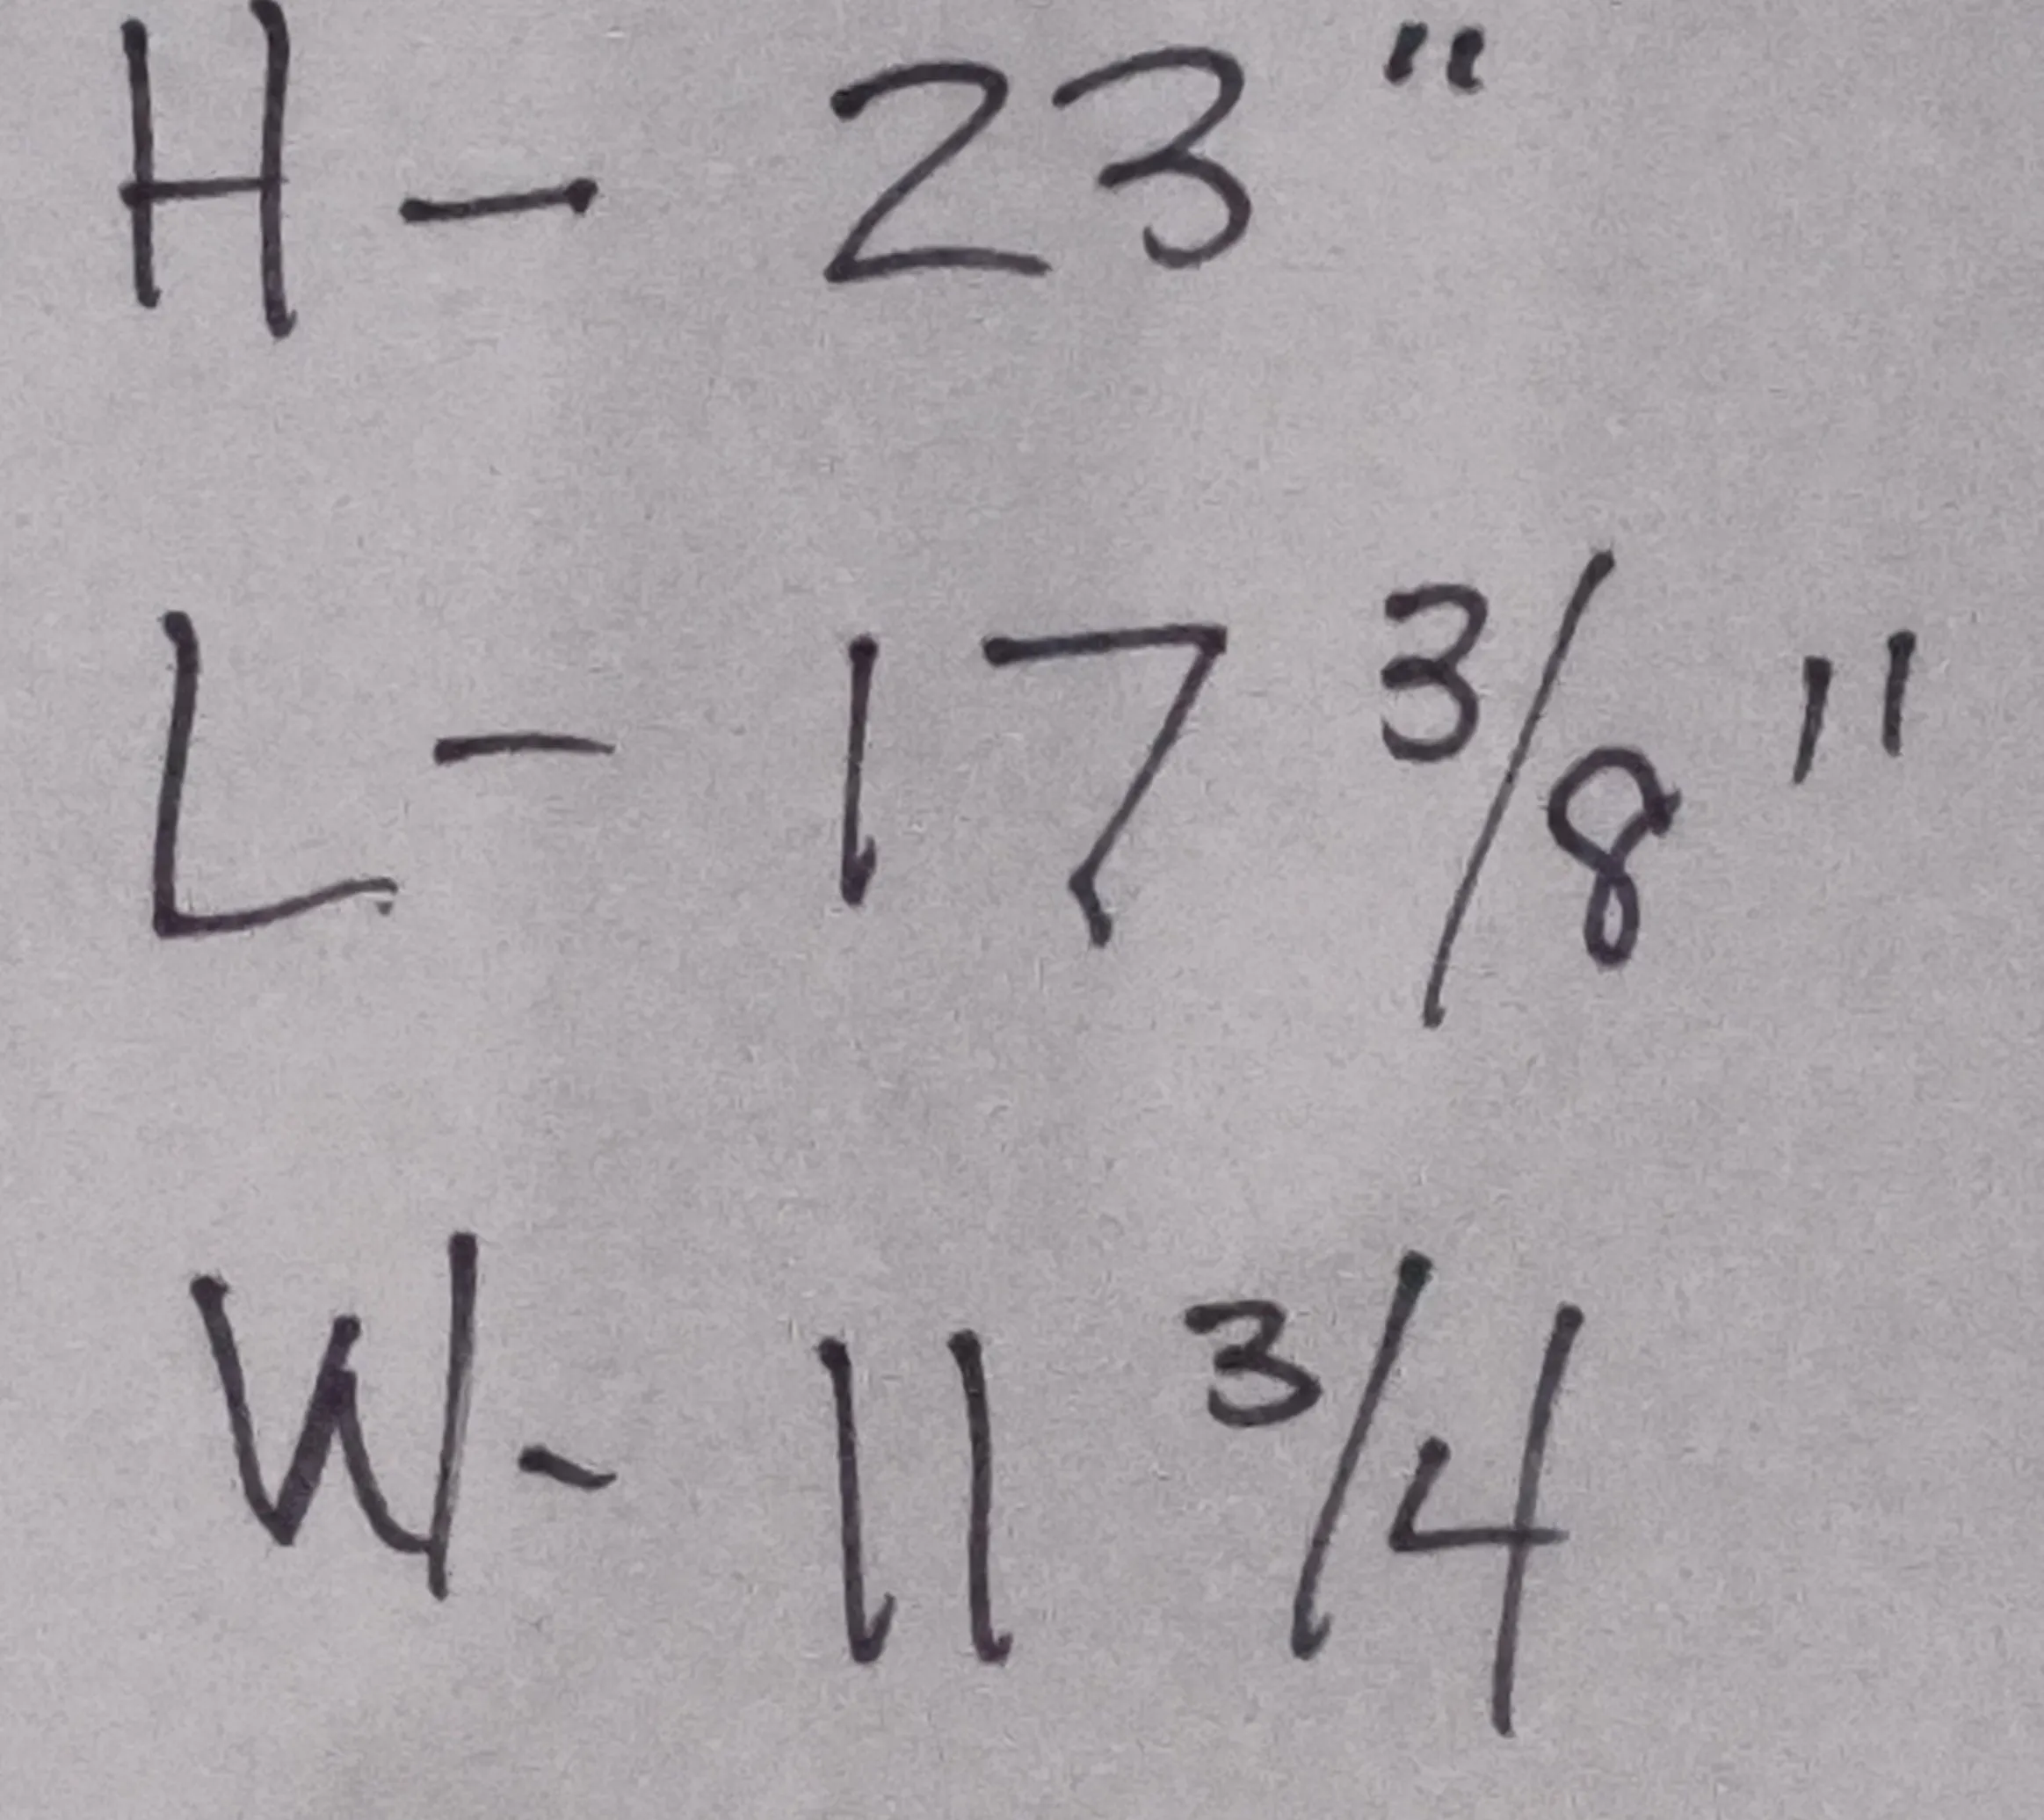 H - 23"
L - 17 3/8"
W - 11 3/4